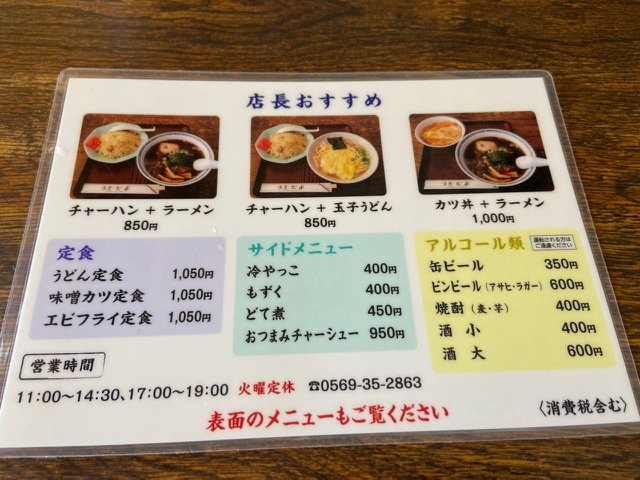 店長おすすめ
チャーハン + ラーメン
850円
チャーハン + 玉子うどん
850円
カツ丼 + ラーメン
1,000円
定食
うどん定食 1,050円
味噌カツ定食 1,050円
エビフライ定食 1,050円
サイドメニュー
冷やっこ 400円
もずく 400円
どて煮 450円
おつまみチャーシュー 950円
アルコール類 運転される方はご遠慮ください
缶ビール 350円
ビンビール (アサヒ・ラガー) 600円
焼酎 (麦・芋) 400円
酒 小 400円
酒 大 600円
営業時間
11:00〜14:30、17:00〜19:00 火曜定休 ☎0569-35-2863
表面のメニューもご覧ください
〈消費税含む〉